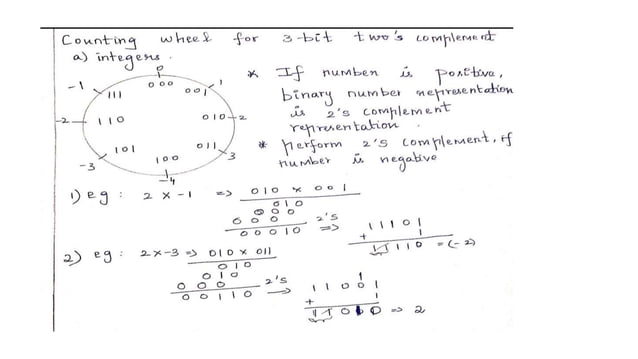 Counting wheel for 3-bit two's complement
a) integers.
0
000
-1
111
001
1
-2
110
010
2
101
011
-3
100
3
-4
* If number is positive,
binary number representation
is 2's complement
representation.
* perform 2's complement, if
number is negative
1) eg : 2 x -1 => 010 x 001
010
000
000
00010 2's => 11101
+ 1
11110 = (-2)
2) eg : 2x-3 => 010 x 011
010
010
000
00110 2's 1
11001
+ 1
11010 => 2